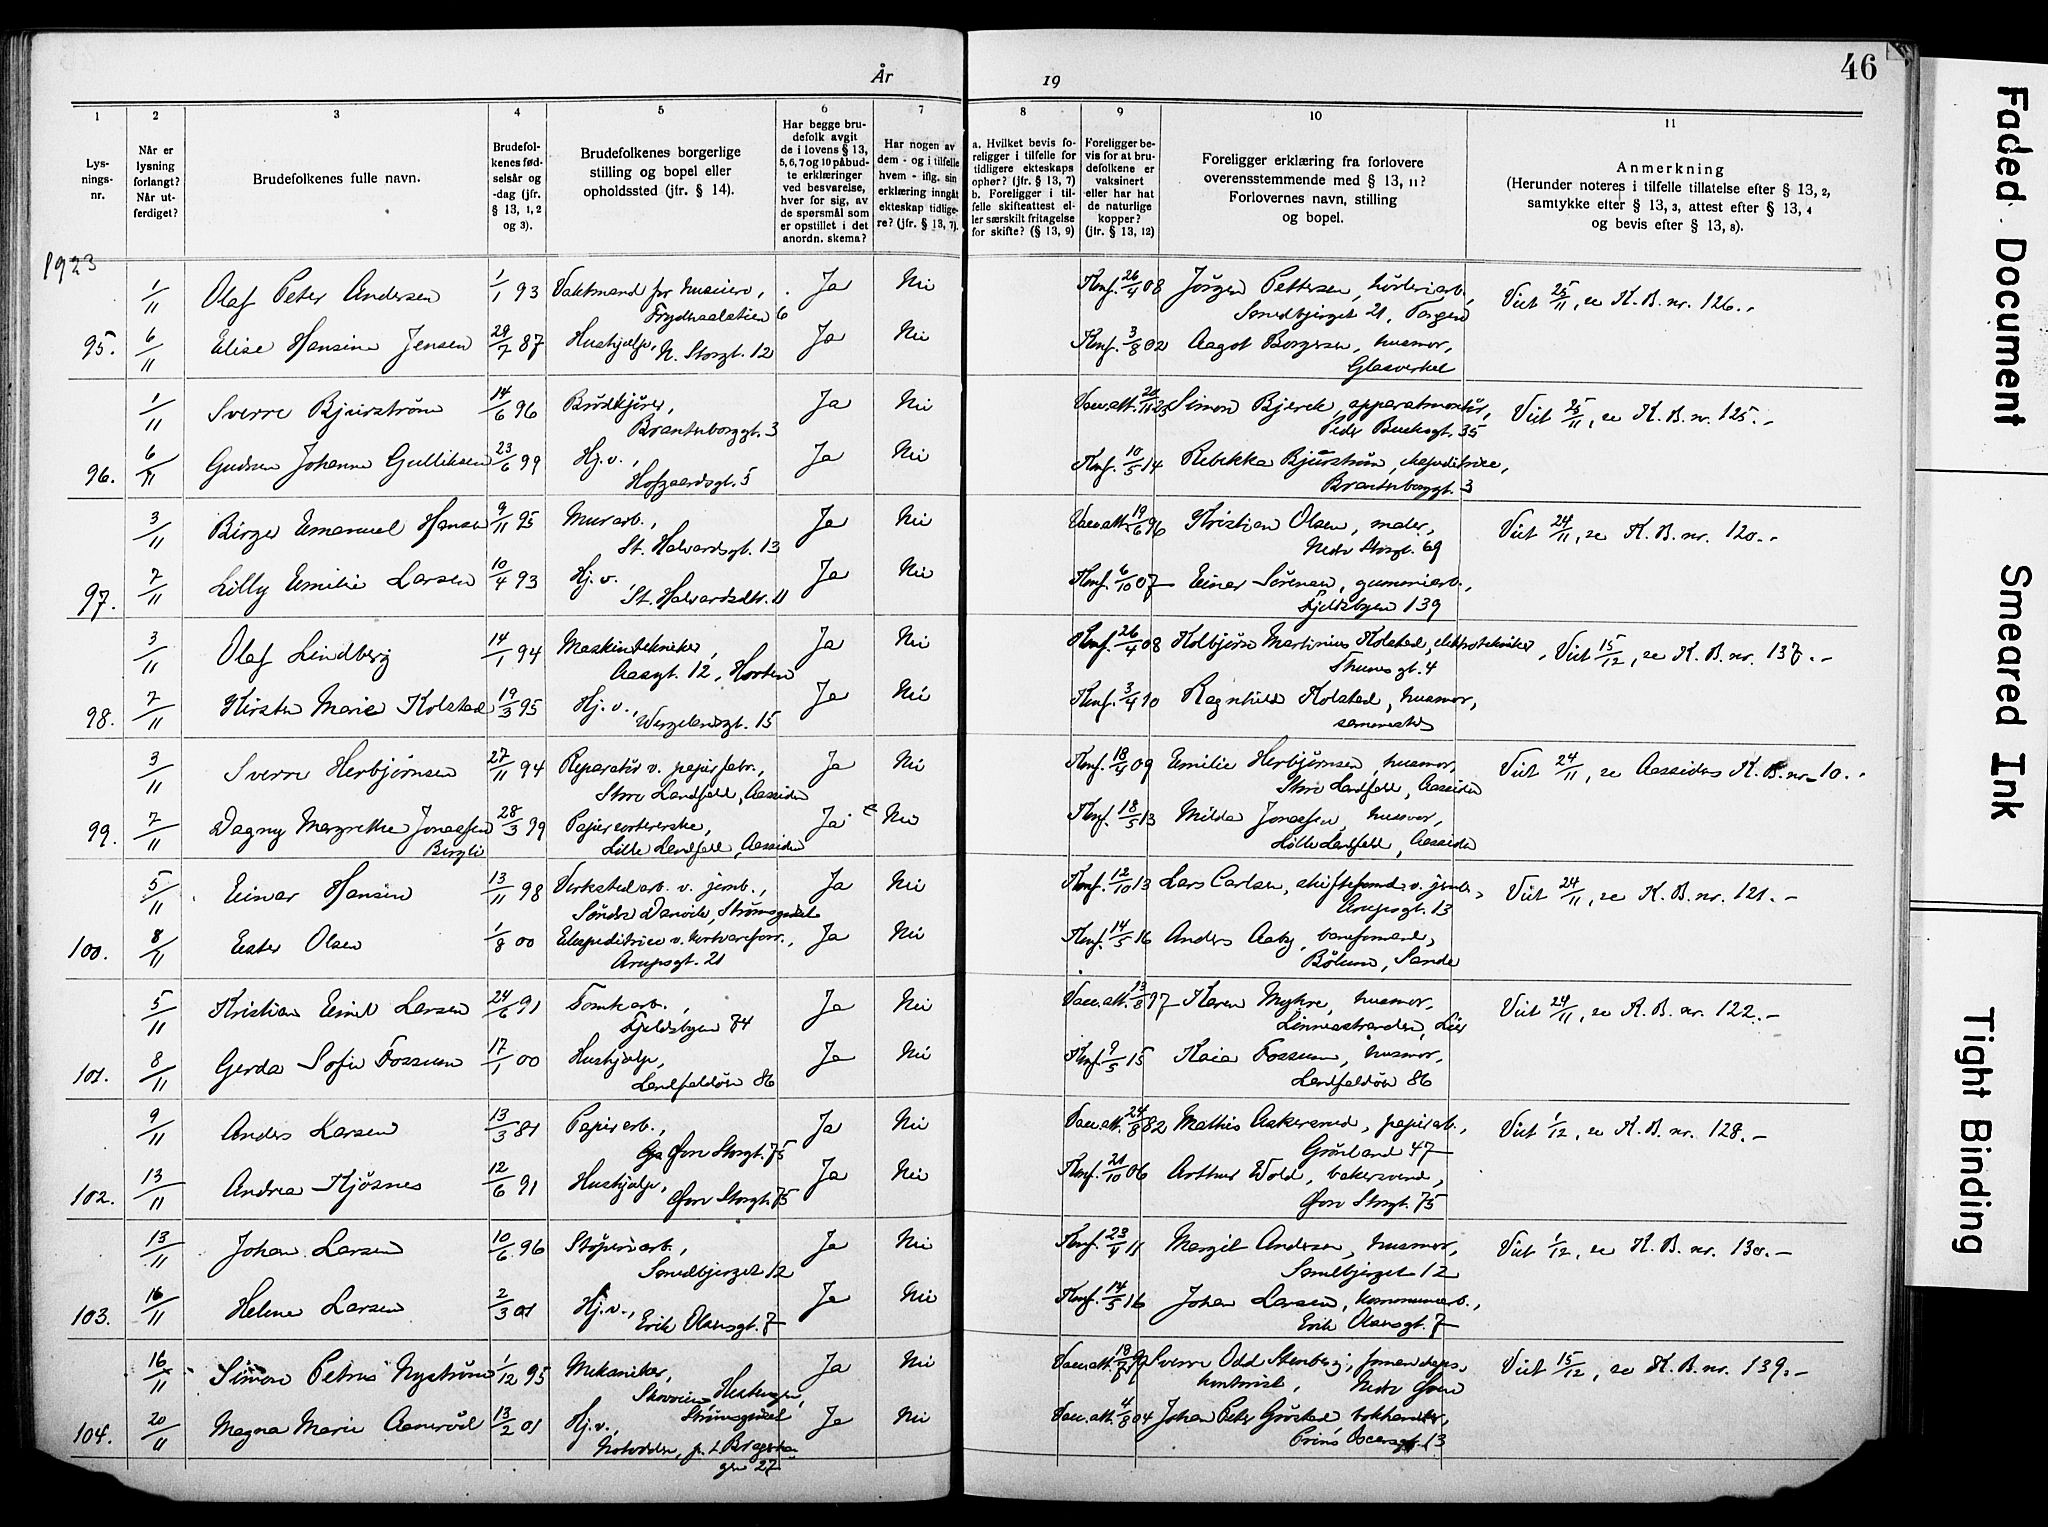 46
År 19
1 2 3 4 5 6 7 8 9 10 11
Lys-
nings-
nr.
Når er
lysning
forlangt?
Når ut-
ferdiget?
Brudefolkenes fulle navn.
Brudefol-
kenes fød-
selsår og
-dag (jfr.
§ 13, 1, 2
og 3).
Brudefolkenes borgerlige
stilling og bopel eller
opholdssted (jfr. § 14).
Har begge bru-
defolk avgit
de i lovens § 13,
5, 6, 7 og 10 påbud-
te erklæringer
ved besvarelse,
hver for sig, av
de spørsmål som
er opstillet i det
anordn. skema?
Har nogen av
dem - og i tilfelle
hvem - iflg. sin
erklæring inngåt
ekteskap tidlige-
re? (jfr. § 13, 7).
a. Hvilket bevis fo-
religger i tilfelle for
tidligere ekteskaps
opher? (jfr. § 13, 7)
b. Foreligger i til-
felle skifteattest el-
ler særskilt fritagelse
for skifte? (§ 13, 9)
Foreligger be-
vis for at bru-
defolkene er
vaksinert
eller har hat
de naturlige
kopper?
(jfr. § 13, 12)
Foreligger erklæring fra forlovere
overensstemmende med § 13, 11?
Forlovernes navn, stilling
og bopel.
Anmerkning
(Herunder noteres i tilfelle tillatelse efter § 13, 2,
samtykke efter § 13, 3, attest efter § 13, 4
og bevis efter § 13, 8).
1923
1/11 Olaf Peter Andersen 1/1 93 Vaktmand for museum, Ja Nei Konf. 26/4 08 Jörgen Pettersen, Viet 25/11, se K.B. nr. 126.-
6
Smedbjerget 21,
95. 6/11 Elise Hansine Jensen 29/7 87 Hushjælp, N. Storgt. 12 Ja Nei Konf. 3/8 02 Aagot Borgersen, husmor,
Glasverket
1/11 Sverre Bjurstrøm 14/6 96 Brødkjører, Ja Nei Vac.att. 20/11 23 Simon Bjerck, apparatmontør, Viet 25/11, se K.B. nr. 125.-
Brantenborggt. 3 Peder Bucksgt. 35
96. 6/11 Gudrun Johanne Gulliksen 23/6 99 Hj.v., Ja Nei Konf. 10/5 14 Rebekka Bjurstrøm, ekspeditrice,
Hofgaardsgt. 5 Brantenborggt. 3
3/11 Birger Emanuel Hansen 9/11 95 Murarb., Ja Nei Vac.att. 19/6 96 Kristian Olsen, maler, Viet 24/11, se K.B. nr. 120.-
St. Halvardsgt. 13 Nedre Storgt. 69
97. 7/11 Lilly Emilie Larsen 10/4 93 Hj.v. Ja Nei Konf. 6/10 07 Einar Sørensen, gummiarb.,
St. Halvardsgt. 11 Fjeldsbyen 139
3/11 Olaf Lindberg 14/1 94 Maskintekniker, Ja Nei Konf. 26/4 08 Kolbjørn Martinius Kolstad, elektrotekniker, Viet 15/12, se K.B. nr. 137.-
Aasgt. 12, Horten Thunesgt. 4
98. 7/11 Kirsten Marie Kolstad 19/3 95 Hj.v., Ja Nei Konf. 3/4 10 Ragnhild Kolstad, husmor,
Wergelandsgt. 15 sammesteds
3/11 Sverre Herbjørnsen 27/11 94 Reparatør v. papirfabr., Ja Nei Konf. 18/4 09 Emilie Herbjørnsen, husmor, Viet 24/11, se Aassidens K.B. nr. 10.-
Store Landfald, Aassiden Store Landfald, Aassiden
99. 7/11 Dagny Margrethe Jonassen 28/3 99 Papirsortererske, Ja Nei Konf. 18/5 13 Milda Jonassen, husmor,
Bergli Lille Landfald, Aassiden Lille Landfald, Aassiden
5/11 Einar Hansen 13/11 98 Verkstedarb. v. jernb., Ja Nei Konf. 12/10 13 Lars Carlsen, skiftefmd. v. jernb., Viet 24/11, se K.B. nr. 121.-
Søndre Danvik, Strømsgodset Arupsgt. 13
100. 8/11 Ester Olsen 1/8 00 Ekspeditrice v. kortvareforr., Ja Nei Konf. 14/5 16 Anders Aaby, baneformand,
Arupsgt. 21 Bølum, Sande
5/11 Kristian Emil Larsen 24/6 91 Tomtearb., Ja Nei Vac.att. 13/8 97 Karen Myhre, husmor, Viet 24/11, se K.B. nr. 122.-
Fjeldsbyen 74 Linnesstranden, Lier
101. 8/11 Gerda Sofie Fossum 17/1 00 Hushjælp, Ja Nei Konf. 9/5 15 Kaia Fossum, husmor,
Landfaldøen 86 Landfaldøen 86
9/11 Anders Larsen 13/3 81 Papirarb., Ja Nei Vac.att. 24/8 82 Mathis Aakersmed, papirarb., Viet 1/12, se K.B. nr. 128.-
Øvre Storgt. 75 Grønland 47
102. 13/11 Andrea Kjøsnes 12/6 91 Hushjælp, Ja Nei Konf. 21/10 06 Arthur Wold, bakersvend,
Øvre Storgt. 75 Øvre Storgt. 75
13/11 Johan Larsen 10/6 96 Støperiarb., Ja Nei Konf. 23/4 11 Margit Andersen, husmor, Viet 1/12, se K.B. nr. 130.-
Smedbjerget 12 Smedbjerget 12
103. 16/11 Helene Larsen 2/3 01 Hj.v., Ja Nei Konf. 14/5 16 Johan Larsen, kommunearb.,
Erik Olsensgt. 7 Erik Olsensgt. 7
16/11 Simon Petrus Nystrøm 1/12 95 Mekaniker, Ja Nei Vac.att. 18/7 Sverre Odd Stenberg, Viet 15/12, se K.B. nr. 139.-
Skovveien, kontorist,
Strømsgodset
104. 20/11 Magna Marie Aamråd 13/2 01 Hj.v., Ja Nei Vac.att. 4/8 04 Johan Peter Grøstad, bokhandler,
Notodden, p.t. Bragerha-
gen 27 Prins Oscarsgt. 13
Faded Document
Smeared Ink
Tight Binding